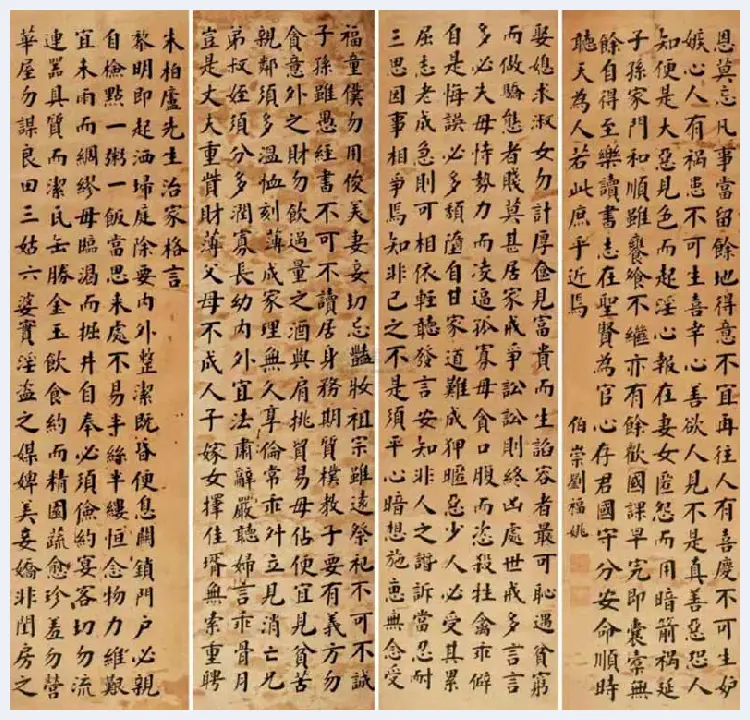 朱柏廬先生治家格言
黎明即起洒埽庭除要內外整潔既昏便息關鎖門戶必親
自檢點一粥一飯當思來處不易半絲半縷恒念物力維艱
宜未雨而綢繆毋臨渴而掘井自奉必須儉約宴客切勿流
連器具質而潔瓦缶勝金玉飲食約而精園蔬愈珍羞勿營
華屋勿謀良田三姑六婆實淫盜之媒婢美妾嬌非閨房之
福童僕勿用俊美妻妾切忌豔妝祖宗雖遠祭祀不可不誠
子孫雖愚經書不可不讀居身務期質樸教子要有義方勿
貪意外之財勿飲過量之酒與肩挑貿易毋佔便宜見貧苦
親鄰須多溫恤刻薄成家理無久享倫常乖舛立見消亡兄
弟叔姪須分多潤寡長幼內外宜法肅辭嚴聽婦言乖骨月
豈是丈夫重貲財薄父母不成人子嫁女擇佳壻無索重聘
娶媳求淑女勿計厚奩見富貴而生諂容者最可恥遇貧窮
而做驕態者賤莫甚居家戒爭訟訟則終凶處世戒多言言
多必失毋恃勢力而凌逼孤寡毋貪口腹而恣殺牲禽乖僻
自是悔誤必多頹墮自甘家道難成狎暱惡少人必受其累
屈志老成急則可相依輕聽發言安知非人之譖訴當忍耐
三思因事相爭焉知非己之不是須平心暗想施惠無念受
恩莫忘凡事當留餘地得意不宜再往人有喜慶不可生妒
嫉心人有禍患不可生喜幸心善欲人見不是真善惡恐人
知便是大惡見色而起淫心報在妻女匿怨而用暗箭禍延
子孫家門和順雖饔飧不繼亦有餘歡國課早完即囊橐無
餘自得至樂讀書志在聖賢為官心存君國守分安命順時
聽天為人若此庶乎近焉
伯崇劉福姚